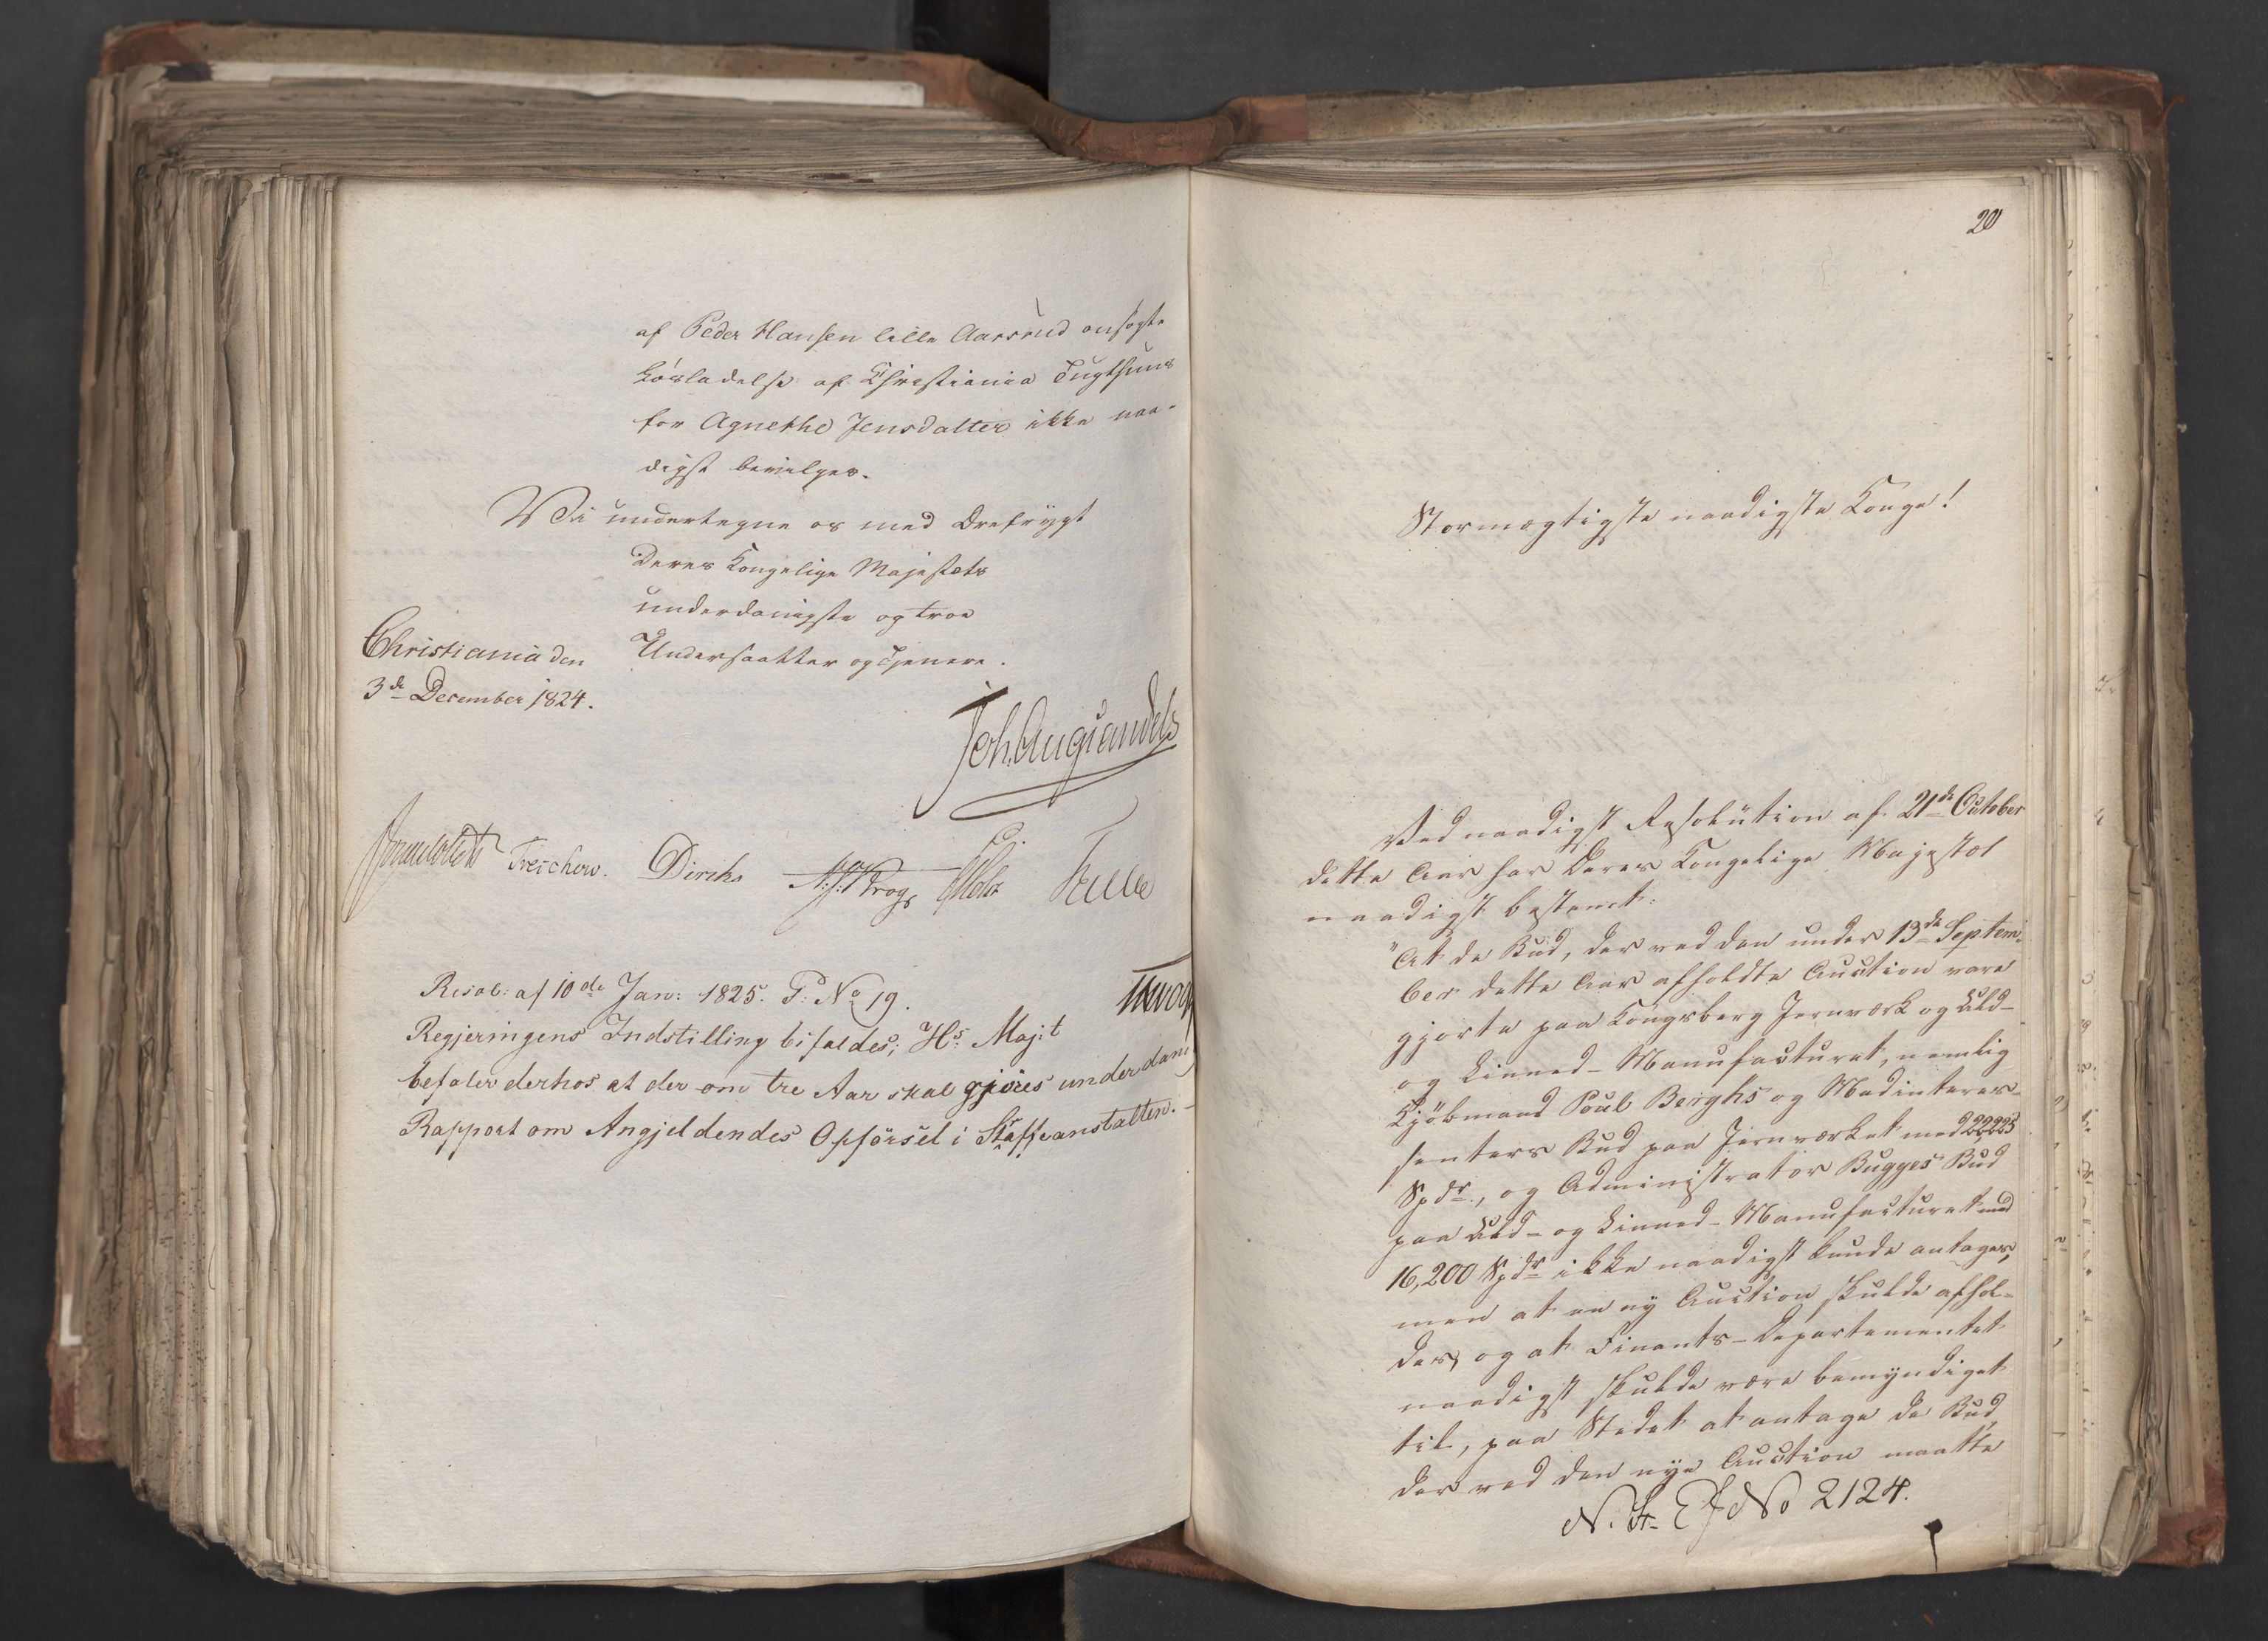 af Peder Hansen lille Aarsrud ansøgte
Løsladelse af Christiania Tugthuus
for Agnethe Jensdatter ikke naa-
digst bevilges.
Vi undertegne os med Ærefrygt
Deres Kongelige Majestæts
underdanigste og troe
Undersaatter og Tjenere.
Christiania den
3de December 1824.
Joh. Aug Sandels
Sommerhielm Treschow. Diriks N:J:Krog Holst Fasting
Resol: af 10de Jan: 1825. P: No 19.
Regjeringens Indstilling bifaldes; Hs: Maj:t
befaler derhos at der om tre Aar skal gjöres underdan:
Rapport om Angjeldendes Opförsel i Straffeanstalten.
20
Stormægtigste naadigste Konge!
Ved naadigst Resolution af 21de October
dette Aar har Deres Kongelige Majestæt
naadigst bestemt:
"At de Bud, der ved den under 13de Septem-
ber dette Aar afholdte Auction vare
gjorte paa Kongsberg Jernværk og Uld-
og Linned-Manufacturet, nemlig
Kjöbmand Poul Berghs og Medinteres-
senters Bud paa Jernværket med 22,225
Spdr., og Administrator Bugges Bud
paa Uld- og Linned-Manufacturet med
16,200 Spdr ikke naadigst kunde antages,
men at en ny Auction skulde afhol-
des, og at Finants-Departementet
naadigst skulde være bemyndiget
til, paa Stedet at antage de Bud,
der ved den nye Auction maatte
No 2124.